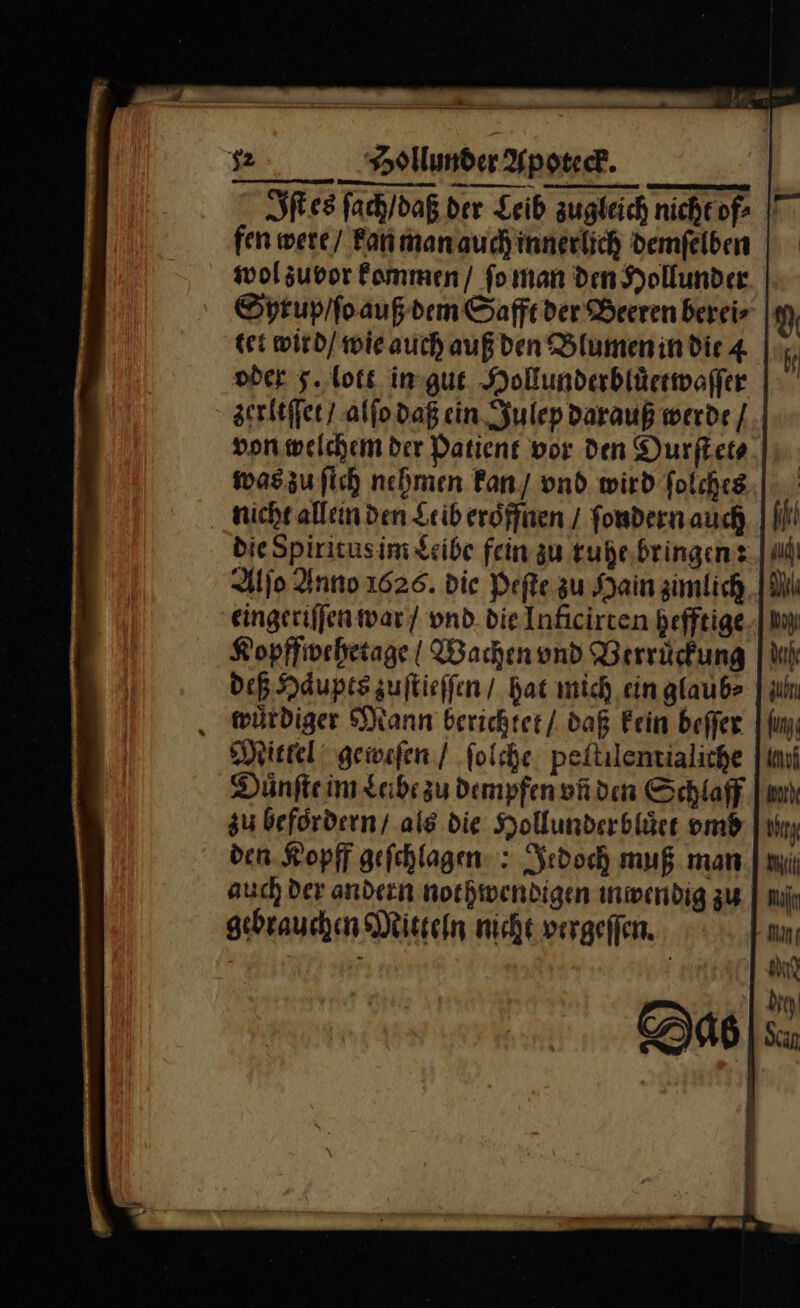 52 Hollunder Apoteck.
Iſt es ſach/daß der Leib zugleich nicht of⸗
fen were/ kan man auch innerlich demſelben
wol zuvor kommen/ ſo man den Hollunder
Syrup/ſo auß dem Safft der Beeren berei⸗
tet wird/ wie auch auß den Blumen in die 4
oder 5. lott in gut Hollunderblůetwaſſer
zerleſſet/ alſo daß ein Julep darauß werde/
von welchem der Patient vor den Durſt et⸗
was zu ſich nehmen kan/ vnd wird ſolches
nicht allein den Leib eroͤffnen / ſondern auch
die Spiritus im Leibe fein zu ruhe bringen:
Alſo Anno 1626. die Peſte zu Hain zimlich
eingeriſſen war/ vnd die Inficirten hefftige
Kopffwehetage/ Wachen vnd Verruͤckung
deß Haͤupts zuſtieſſen/ hat mich ein glaub⸗
wuͤrdiger Mann berichtet/ daß kein beſſer
Mittel geweſen/ ſolche peſtilentialiche
Duͤnſte im Leibe zu dempfen vñ den Schlaff
zu befoͤrdern/ als die Hollunderbluͤet vmb
den Kopff geſchlagen : Jedoch muß man
auch der andern nothwendigen inwendig zu
gebrauchen Mitteln nicht vergeſſen.
Das